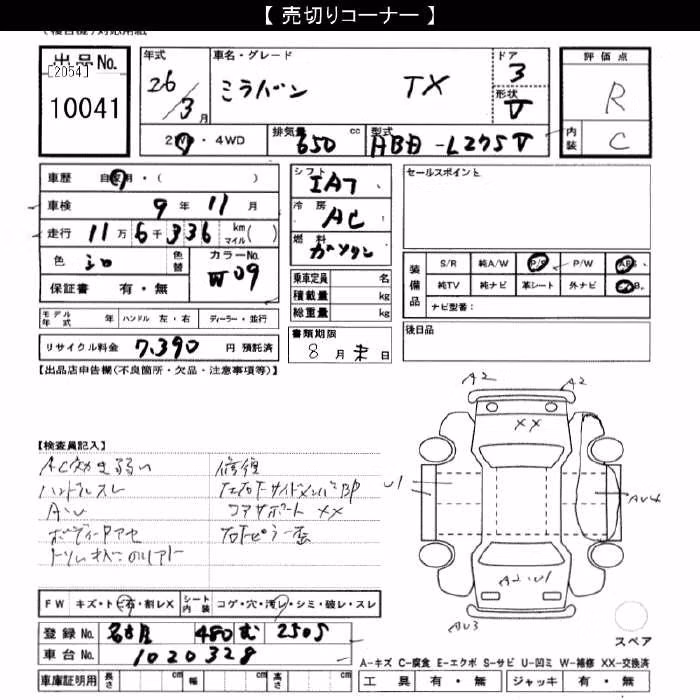 【 売切りコーナー 】
(複合機)対応用紙
出品No.
[2054]
10041
年式 26/3月
車名・グレード ミラバン TX
ドア 3
形状 V
評価点 R
内装 C
2W・4WD
排気量 650 cc
型式 HBD-L275V
車歴 自家用・( )
車検 9年 11月
走行 11万 6千 336 km マイル( )
色 シロ 色替
カラーNo. W09
保証書 有・無
シフト IAT
冷房 AC
燃料 ガソリン
乗車定員 名
積載量 kg
総重量 kg
セールスポイント
装備品
S/R 純A/W P/S P/W ABS
純TV 純ナビ 革シート 外ナビ エアB
ナビ型番:
モデル年式 年 ハンドル 左・右 ディーラー・並行
書類期限 8月末日
後日品
リサイクル料金 7,390 円 預託済
【出品店申告欄(不良箇所・欠品・注意事項等)】
【検査員記入】
AC効き弱い 修復
ハンドルスレ 左右Fサイドメンバ BP
AU コアサポート XX
ボディ
右Fピラー歪
A2 A2
XX
U1
AU4
A2.U1
AU3
スペア
FW キズ・トビ石・割レX シート内装 コゲ・穴・汚レ・シミ・破レ・スレ
登録No. 名古屋 480 む 2505
車台No. 1020328
車庫証明用 長さ cm 幅 cm 高さ cm
A-キズ C-腐食 E-エクボ S-サビ U-凹ミ W-補修 XX-交換済
工具 有・無 ジャッキ 有・無